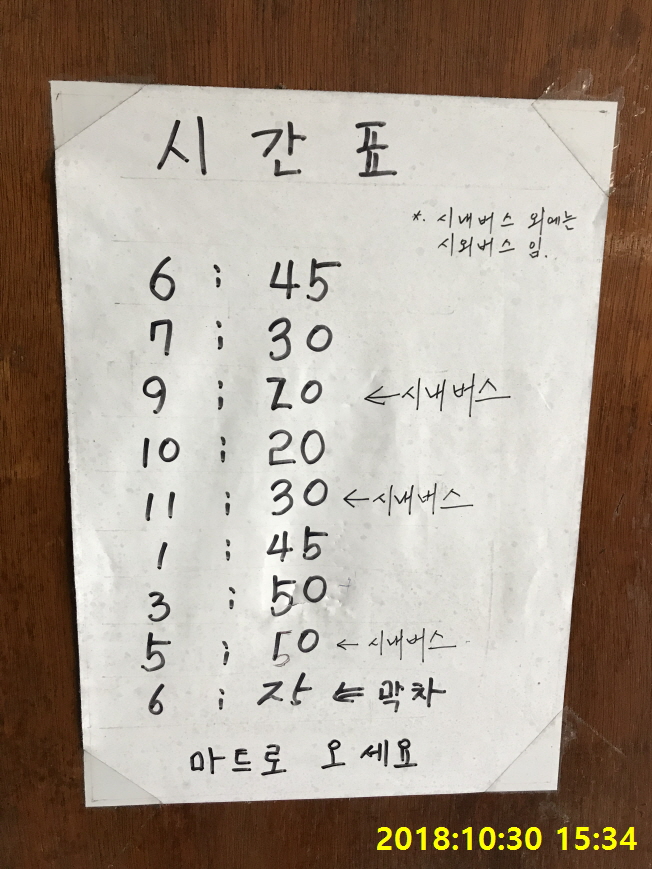 시간표
*. 시내버스 외에는
시외버스 임.
6 : 45
7 : 30
9 : 20 ←시내버스
10 : 20
11 : 30 ←시내버스
1 : 45
3 : 50
5 : 50 ←시내버스
6 : 25 ⇐ 막차
마트로 오세요
2018:10:30 15:34